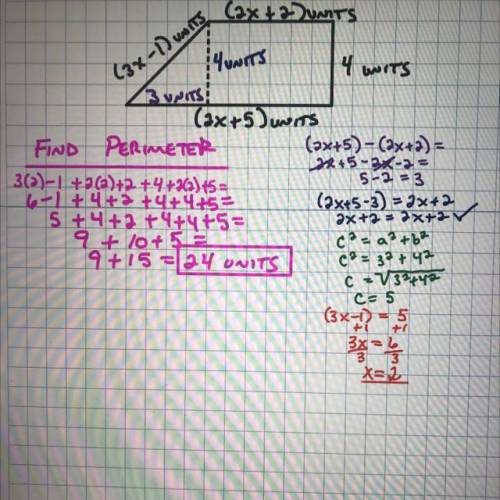 (2x+2) UNITS
(3x-1) UNITS
4 UNITS
4 UNITS
3 UNITS
(2x+5) UNITS
FIND PERIMETER
3(2)-1 + 2(2)+2 + 4 + 2(2)+5 =
6-1 + 4+2 + 4 + 4+5 =
5 + 4+2 + 4+4+5 =
9 + 10 + 5 =
9 + 15 = 24 UNITS
(2x+5) - (2x+2) =
2x+5 - 2x - 2 =
5-2 = 3
(2x+5-3) = 2x+2
2x+2 = 2x+2 ✓
c² = a² + b²
c² = 3² + 4²
c = √3²+4²
c = 5
(3x-1) = 5
+1 +1
3x = 6
3 3
x=2